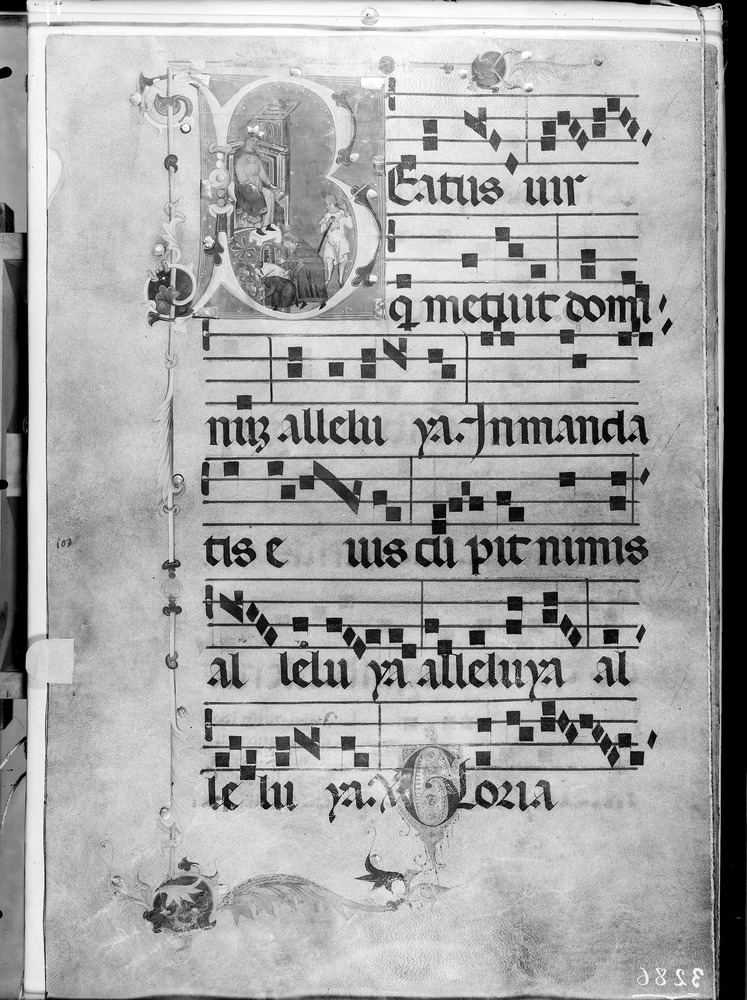 BEatus uir
q̄ metuit domi
nuȝ allelu ya. Jnmanda
tis e ius cu pit nimis
al lelu ya alleluya al
le lu ya. GLoria
103
3286